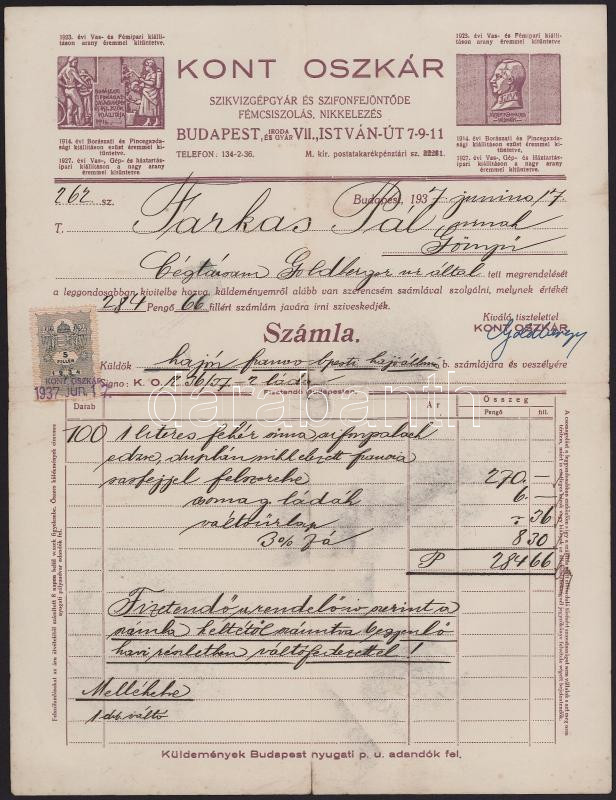 1923. évi Vas- és Fémipari kiálli-
táson arany éremmel kitüntetve.
1914. évi Borászati és Pincegazda-
sági kiállitáson ezüst éremmel ki-
tüntetve.
1927. évi Vas-, Gép- és Háztartás-
ipari kiállitáson a nagy arany
éremmel kitüntetve.
KONT OSZKÁR
SZIKVIZGÉPGYÁR ÉS SZIFONFEJÖNTÖDE
FÉMCSISZOLÁS, NIKKELEZÉS
BUDAPEST, IRODA ÉS GYÁR VII., ISTVÁN-ÚT 7-9-11
TELEFON: 134-2-36. M. kir. postatakarékpénztári sz.
1923. évi Vas- és Fémipari kiálli-
táson arany éremmel kitüntetve.
1914. évi Borászati és Pincegazda-
sági kiállitáson ezüst éremmel
kitüntetve.
1927. évi Vas-, Gép- és Háztartás-
ipari kiállitáson a nagy arany
éremmel kitüntetve.
262 sz. Budapest, 1937 junius 17.
T. Farkas Pál urnak
Gönyü
Cégtársam Goldberger ur által tett megrendelését
a leggondosabban kivitelbe hozva, küldeményemről alább van szerencsém számlával szolgálni, melynek értékét
284 Pengő 66 fillért számlám javára irni sziveskedjék.
Kiváló tisztelettel
KONT OSZKÁR
Számla.
5
FILLÉR
1934
KONT OSZKÁR
1937 JUN. 17.
Küldök hajón franco bpesti hajóállom. b. számlájára és veszélyére
Signo: K. O. 1236/37. 2 láda
Fizetendő Budapesten.
Darab Ár Összeg
Pengő fill.
100 1 literes fehér sima szifonpalack
edzve, duplán nikkelezett francia
sasfejjel felszerelve 270.—
csomag. ládák 6.—
váltóürlap -.36
3% fá 8 30
P 284 66
Fizetendő a rendelőiv szerint a
számla keltétől számitva egyenlő
havi részletben váltófedezettel!
Mellékelve
1 drb. váltó
Küldemények Budapest nyugati p. u. adandók fel.
darabanth